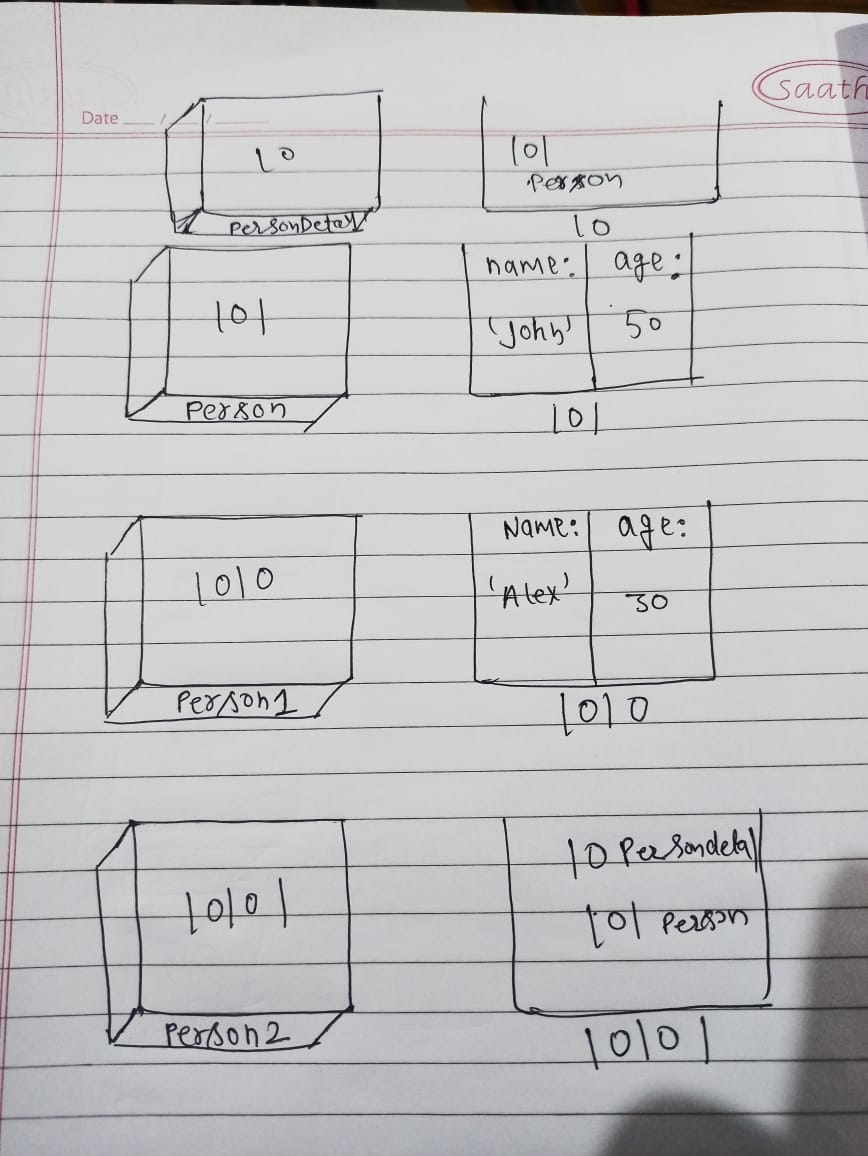 saath
Date
10
PersonDetail
101
Person
10
101
Person
name: age:
'John' 50
101
1010
Person1
Name: age:
'Alex' 30
1010
10101
Person2
10 Persondetal
101 Person
10101